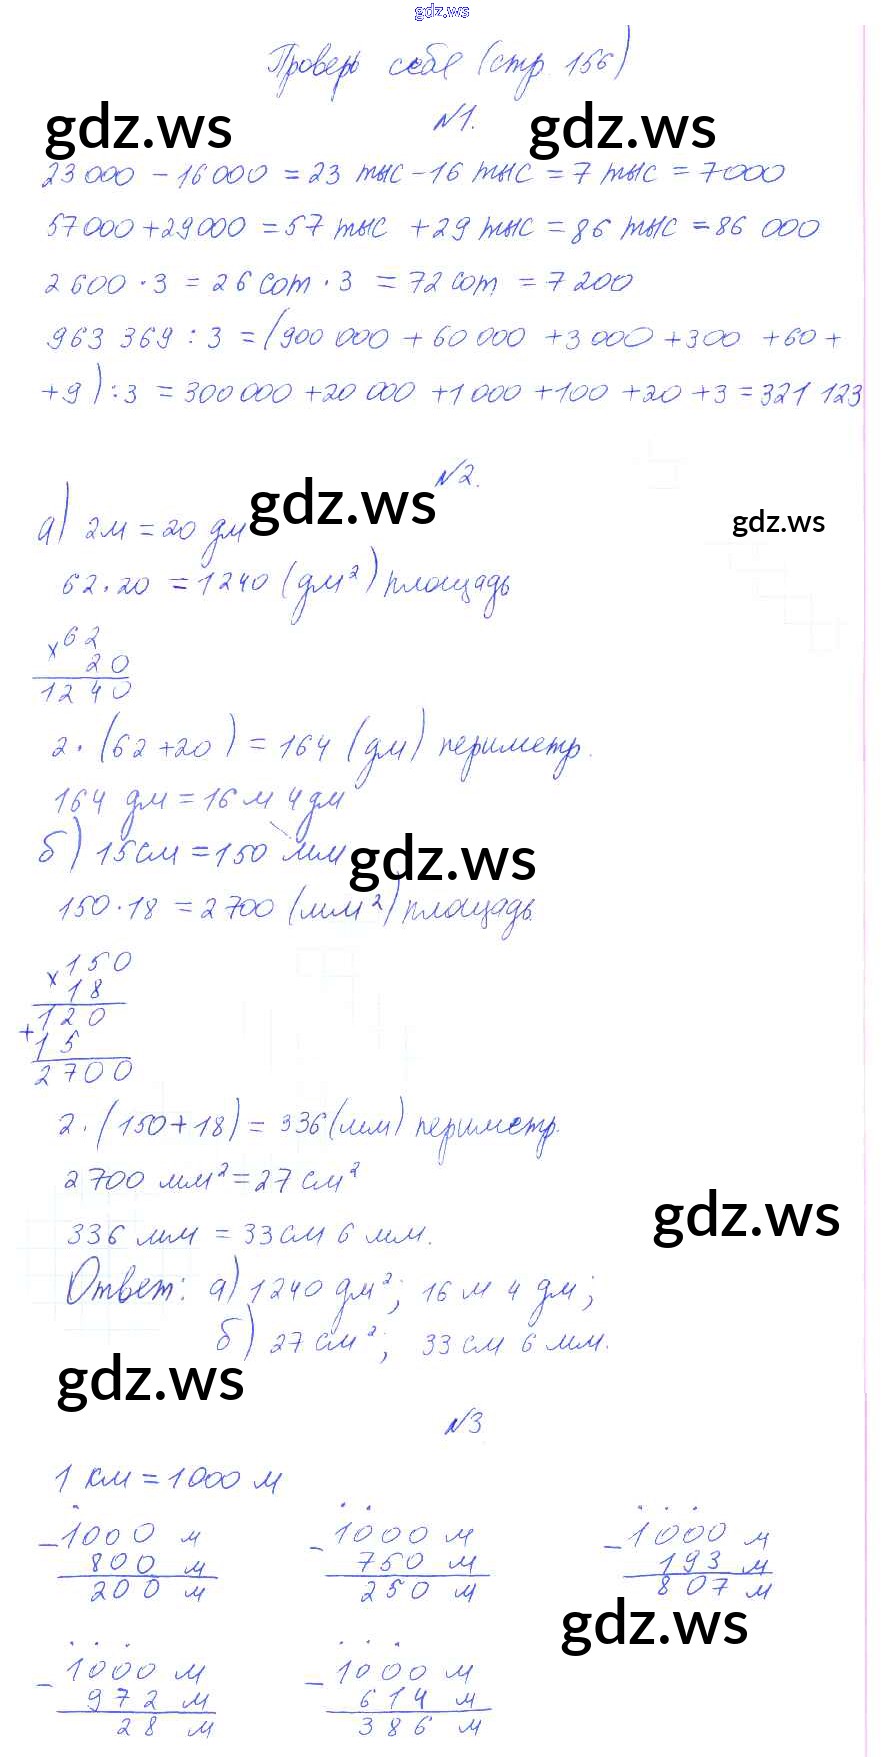 gdz.ws
Проверь себя (стр. 156)
gdz.ws gdz.ws
№1.
23 000 - 16 000 = 23 тыс - 16 тыс = 7 тыс = 7000
57 000 + 29 000 = 57 тыс + 29 тыс = 86 тыс = 86 000
2 600 · 3 = 26 сот · 3 = 72 сот = 7 200
963 369 : 3 = (900 000 + 60 000 + 3 000 + 300 + 60 +
+ 9) : 3 = 300 000 + 20 000 + 1 000 + 100 + 20 + 3 = 321 123
№2.
gdz.ws
gdz.ws
а) 2 м = 20 дм
62 · 20 = 1240 (дм²) площадь
× 62
20
1240
2 · (62 + 20) = 164 (дм) периметр.
164 дм = 16 м 4 дм
б) 15 см = 150 мм
gdz.ws
150 · 18 = 2 700 (мм²) площадь
× 150
18
120
+ 15
2700
2 · (150 + 18) = 336 (мм) периметр.
2 700 мм² = 27 см²
336 мм = 33 см 6 мм.
gdz.ws
Ответ: а) 1 240 дм²; 16 м 4 дм;
б) 27 см²; 33 см 6 мм.
gdz.ws
№3
1 км = 1000 м
- 1000 м - 1000 м - 1000 м
800 м 750 м 193 м
200 м 250 м 807 м
gdz.ws
- 1000 м - 1000 м
972 м 614 м
28 м 386 м